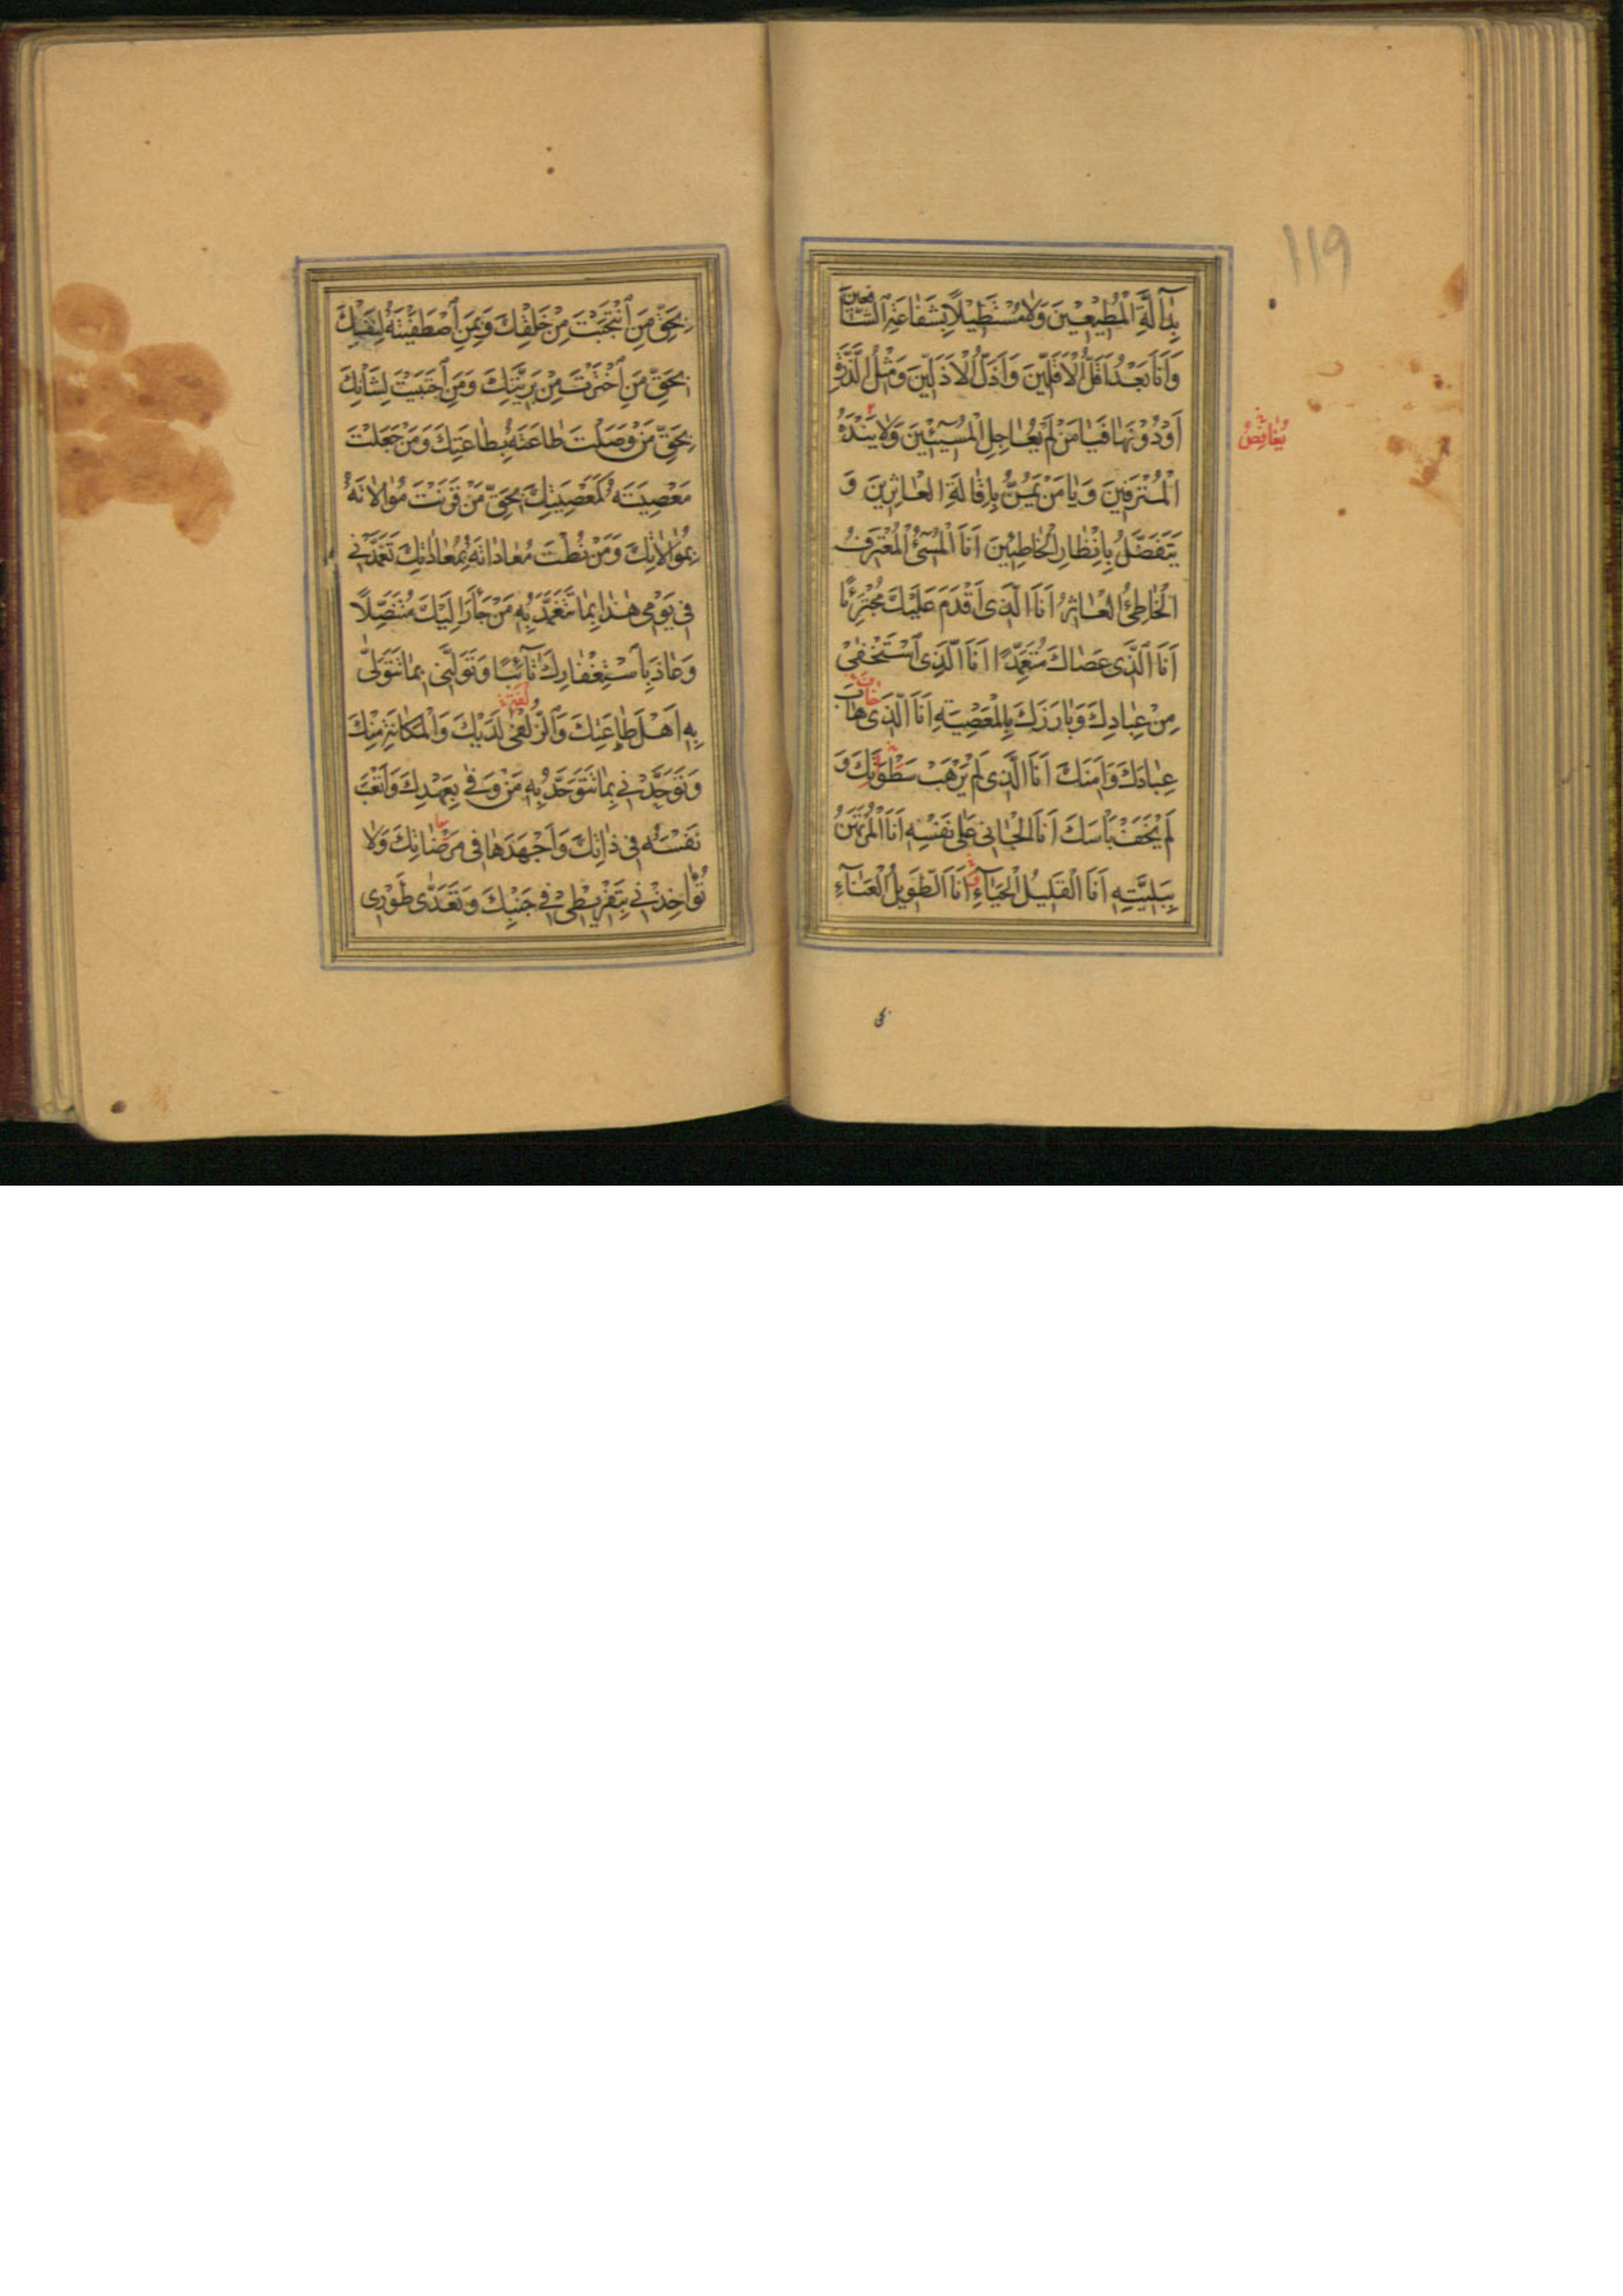 ١١٩
بِدَالَّةِ الْمُطِيعِينَ وَلَا مُسْتَطِيلًا بِشَفَاعَةِ الشَّافِعِينَ
وَأَنَا بَعْدُ أَقَلُّ الْأَقَلِّينَ وَأَذَلُّ الْأَذَلِّينَ وَمِثْلُ الذَّرَّةِ
أَوْ دُونَهَا فَيَا مَنْ لَمْ يُعَاجِلِ الْمُسِيئِينَ وَلَا يَنْدَهُ
الْمُتْرَفِينَ وَيَا مَنْ يَمُنُّ بِإِقَالَةِ الْعَاثِرِينَ وَ
يَتَفَضَّلُ بِإِنْظَارِ الْخَاطِئِينَ أَنَا الْمُسِيءُ الْمُعْتَرِفُ
الْخَاطِئُ الْعَاثِرُ أَنَا الَّذِي أَقْدَمَ عَلَيْكَ مُجْتَرِئًا
أَنَا الَّذِي عَصَاكَ مُتَعَمِّدًا أَنَا الَّذِي اسْتَخْفَى
مِنْ عِبَادِكَ وَبَارَزَكَ بِالْمَعْصِيَةِ أَنَا الَّذِي هَابَ
عِبَادَكَ وَأَمِنَكَ أَنَا الَّذِي لَمْ يَرْهَبْ سَطْوَتَكَ وَ
لَمْ يَخَفْ بَأْسَكَ أَنَا الْجَانِي عَلَى نَفْسِهِ أَنَا الْمُرْتَهَنُ
بِبَلِيَّتِهِ أَنَا الْقَلِيلُ الْحَيَاءِ أَنَا الطَّوِيلُ الْعَنَاءِ
بِحَقِّ مَنِ انْتَجَبْتَ مِنْ خَلْقِكَ وَبِمَنِ اصْطَفَيْتَهُ لِنَفْسِكَ
بِحَقِّ مَنِ اخْتَرْتَ مِنْ بَرِيَّتِكَ وَمَنِ اجْتَبَيْتَ لِشَأْنِكَ
بِحَقِّ مَنْ وَصَلْتَ طَاعَتَهُ بِطَاعَتِكَ وَمَنْ جَعَلْتَ
مَعْصِيَتَهُ كَمَعْصِيَتِكَ بِحَقِّ مَنْ قَرَنْتَ مُوَالَاتَهُ
بِمُوَالَاتِكَ وَمَنْ نُطْتَ مُعَادَاتَهُ بِمُعَادَاتِكَ تَغَمَّدْنِي
فِي يَوْمِي هٰذَا بِمَا تَتَغَمَّدُ بِهِ مَنْ جَأَرَ إِلَيْكَ مُتَنَصِّلًا
وَعَاذَ بِاسْتِغْفَارِكَ تَائِبًا وَتَوَلَّنِي بِمَا تَتَوَلَّى
بِهِ أَهْلَ طَاعَتِكَ وَالزُّلْفَى لَدَيْكَ وَالْمَكَانَةِ مِنْكَ
وَتَوَحَّدْنِي بِمَا تَتَوَحَّدُ بِهِ مَنْ وَفَى بِعَهْدِكَ وَأَتْعَبَ
نَفْسَهُ فِي ذَاتِكَ وَأَجْهَدَهَا فِي مَرْضَاتِكَ وَلَا
تُؤَاخِذْنِي بِتَفْرِيطِي فِي جَنْبِكَ وَتَعَدِّي طَوْرِي